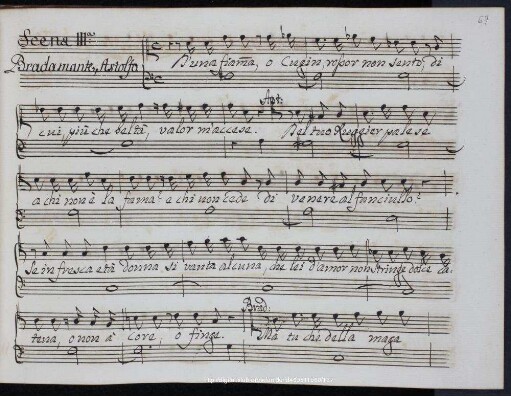 Scena III.ª
Bradamante, Astolfo
D'una fiama, o Cugin, sopor non sento, di
Ast:
cui, più che beltà, valor m'accese. Del tuo Ruggier palese
a chi non è la fama? e chi non cede di Venere al fanciullo?
Se in fresca età donna si vanta alcuna, che lei d'amor non stringe dolce ca-
Brad:
tena, o non à core, o finge. Ma tu che della maga